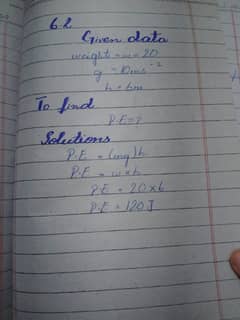 6.2
Given data
weight = w = 20
g = 10ms⁻²
h = 6m
To find
P.E = ?
Solutions
P.E = (mg)h
P.E = w×h
P.E = 20×6
P.E = 120 J